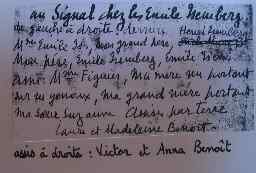 au Signal chez les Emile Heuberg
de gauche à droite : derrière Henri Heuberg
Mme Emile mon grand père,
Mon père, Emile Heuberg, Emile
assis: Mme Figuier, Ma mère me portant
sur ses genoux, ma grand mère portant
ma soeur Suzanne. Assis par terre
Laure et Madeleine Benoît.
assis à droite : Victor et Anna Benoît